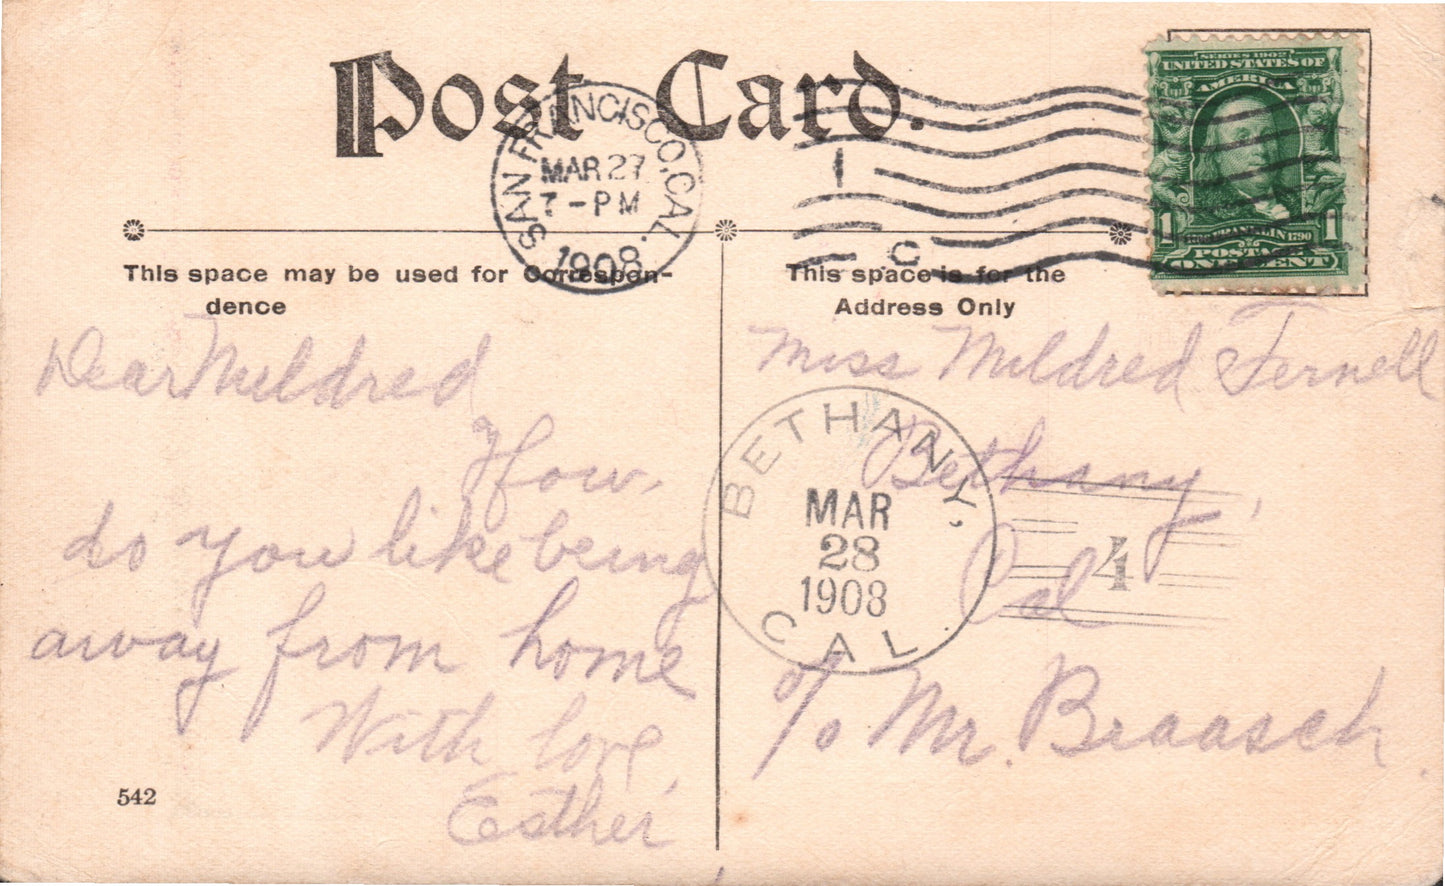 Post Card.
SAN FRANCISCO, CAL.
MAR 27
7 - PM
1908
1
C
SERIES 1902
UNITED STATES OF
AMERICA
1 FRANKLIN 1790 1
POSTAGE
ONE CENT
This space may be used for Correspon-
dence
Dear Mildred
How
do you like being
away from home
With love,
Esther
542
This space is for the
Address Only
Miss Mildred Fernell
Bethany,
Cal
c/o Mr. Braasch.
BETHANY,
MAR
28
1908
CAL.
4